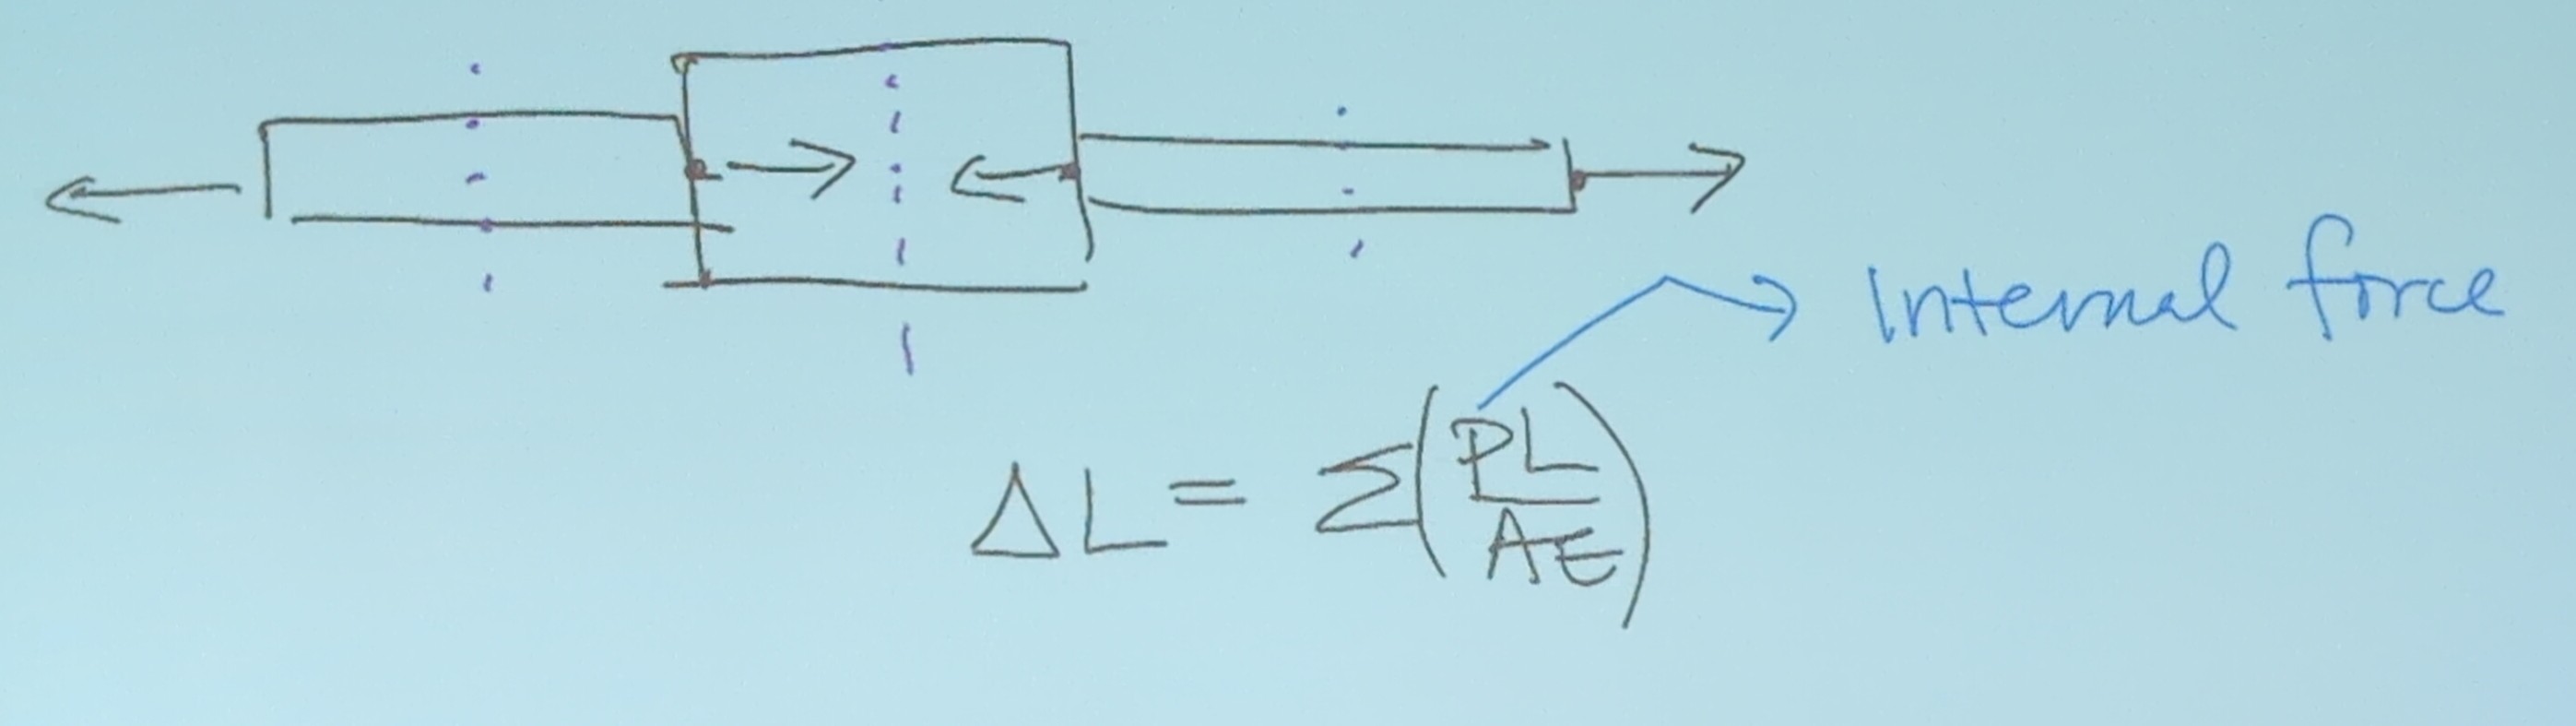 Internal force
ΔL = Σ(PL/AE)